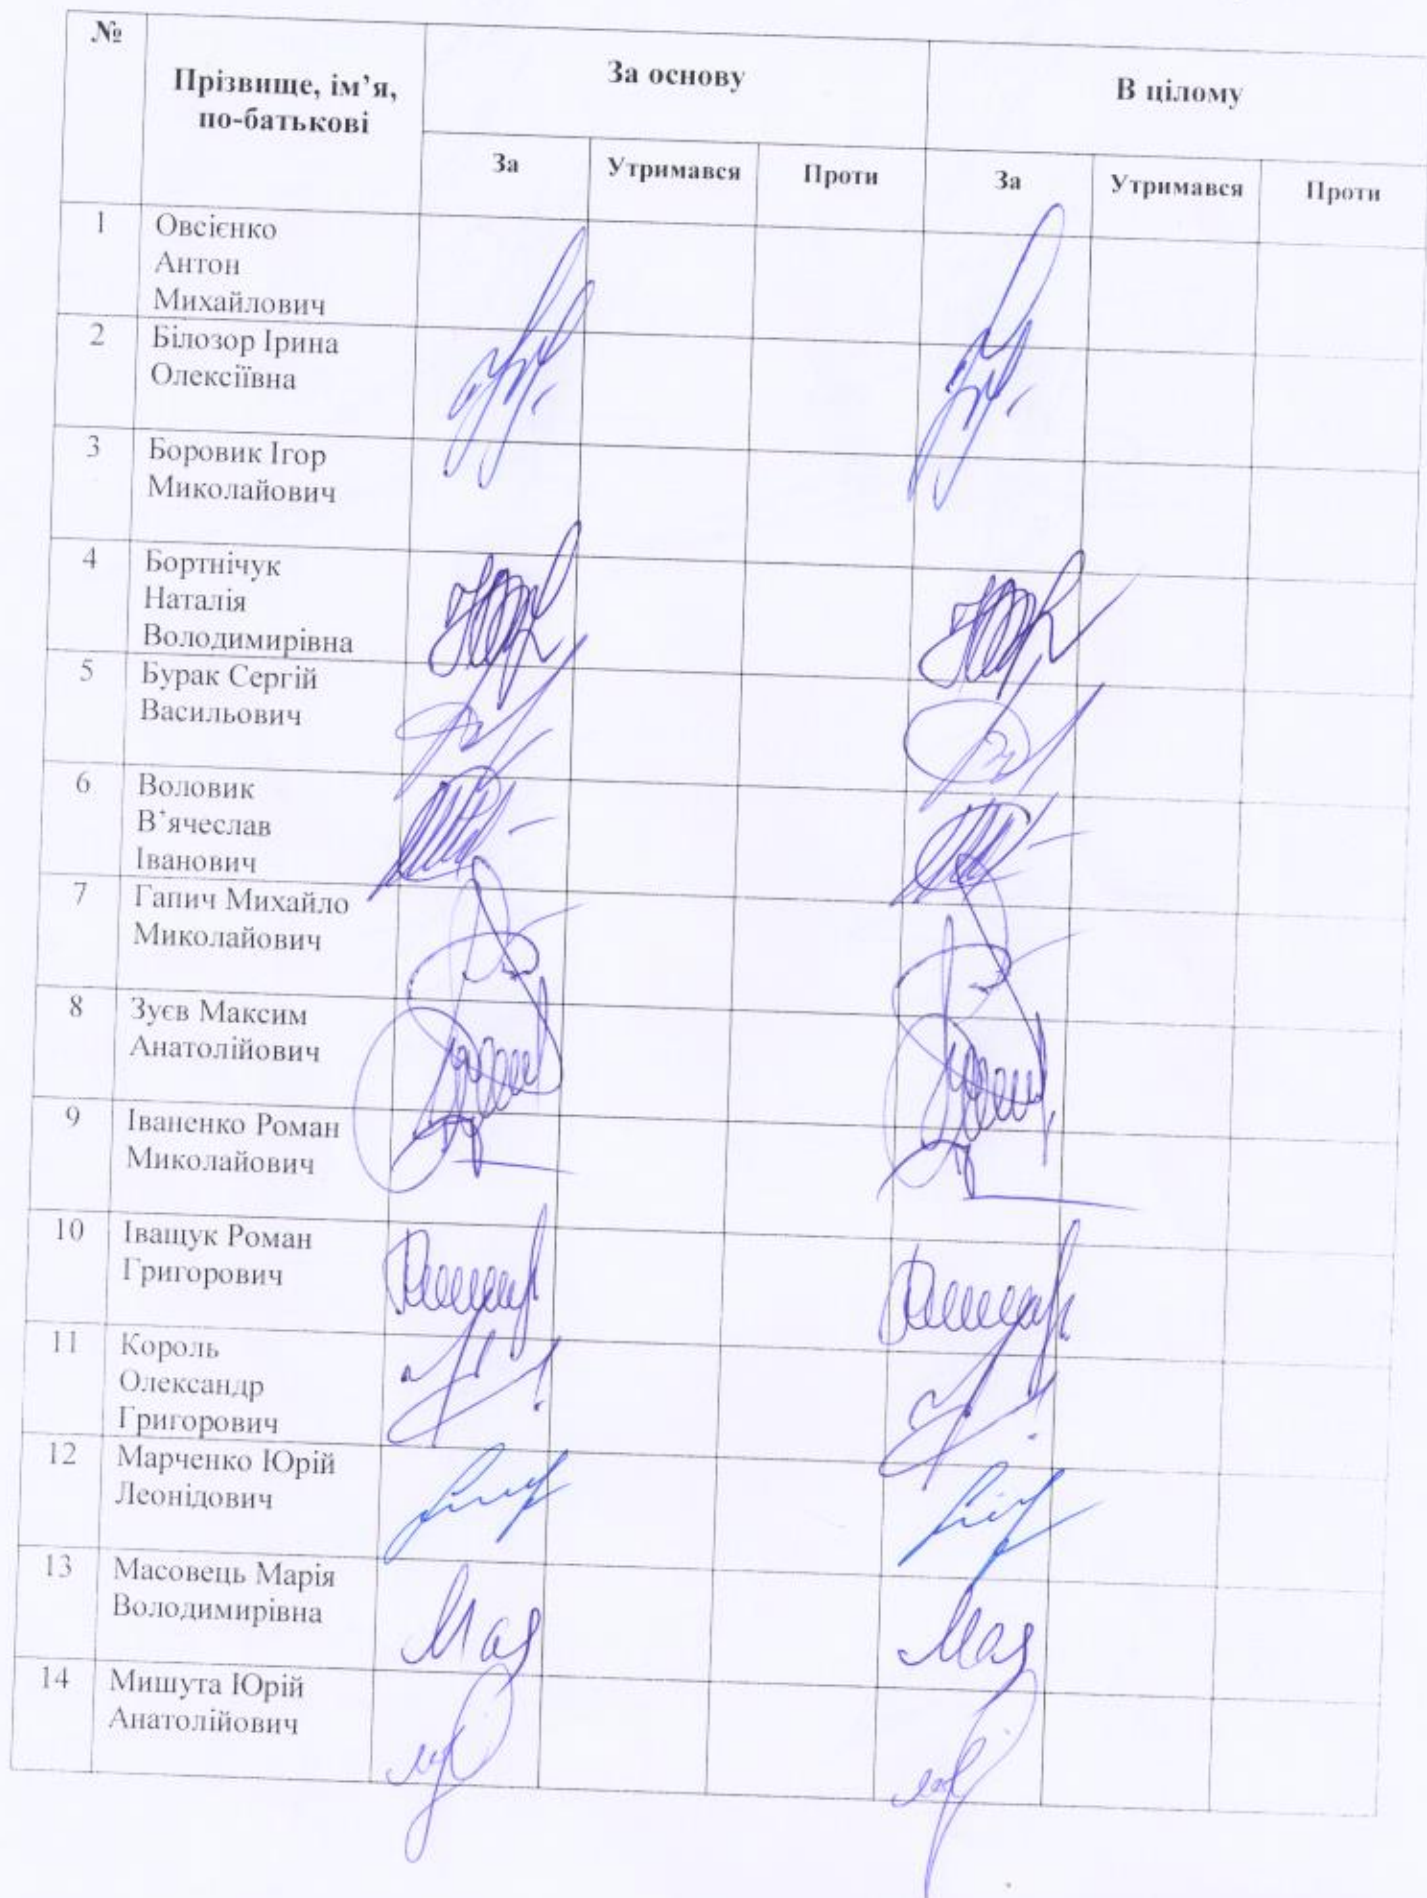 №
Прізвище, ім’я,
по-батькові
За основу
В цілому
За
Утримався
Проти
За
Утримався
Проти
1
Овсієнко
Антон
Михайлович
2
Білозор Ірина
Олексіївна
3
Боровик Ігор
Миколайович
4
Бортнічук
Наталія
Володимирівна
5
Бурак Сергій
Васильович
6
Воловик
В’ячеслав
Іванович
7
Гапич Михайло
Миколайович
8
Зуєв Максим
Анатолійович
9
Іваненко Роман
Миколайович
10
Іващук Роман
Григорович
11
Король
Олександр
Григорович
12
Марченко Юрій
Леонідович
13
Масовець Марія
Володимирівна
14
Мишута Юрій
Анатолійович